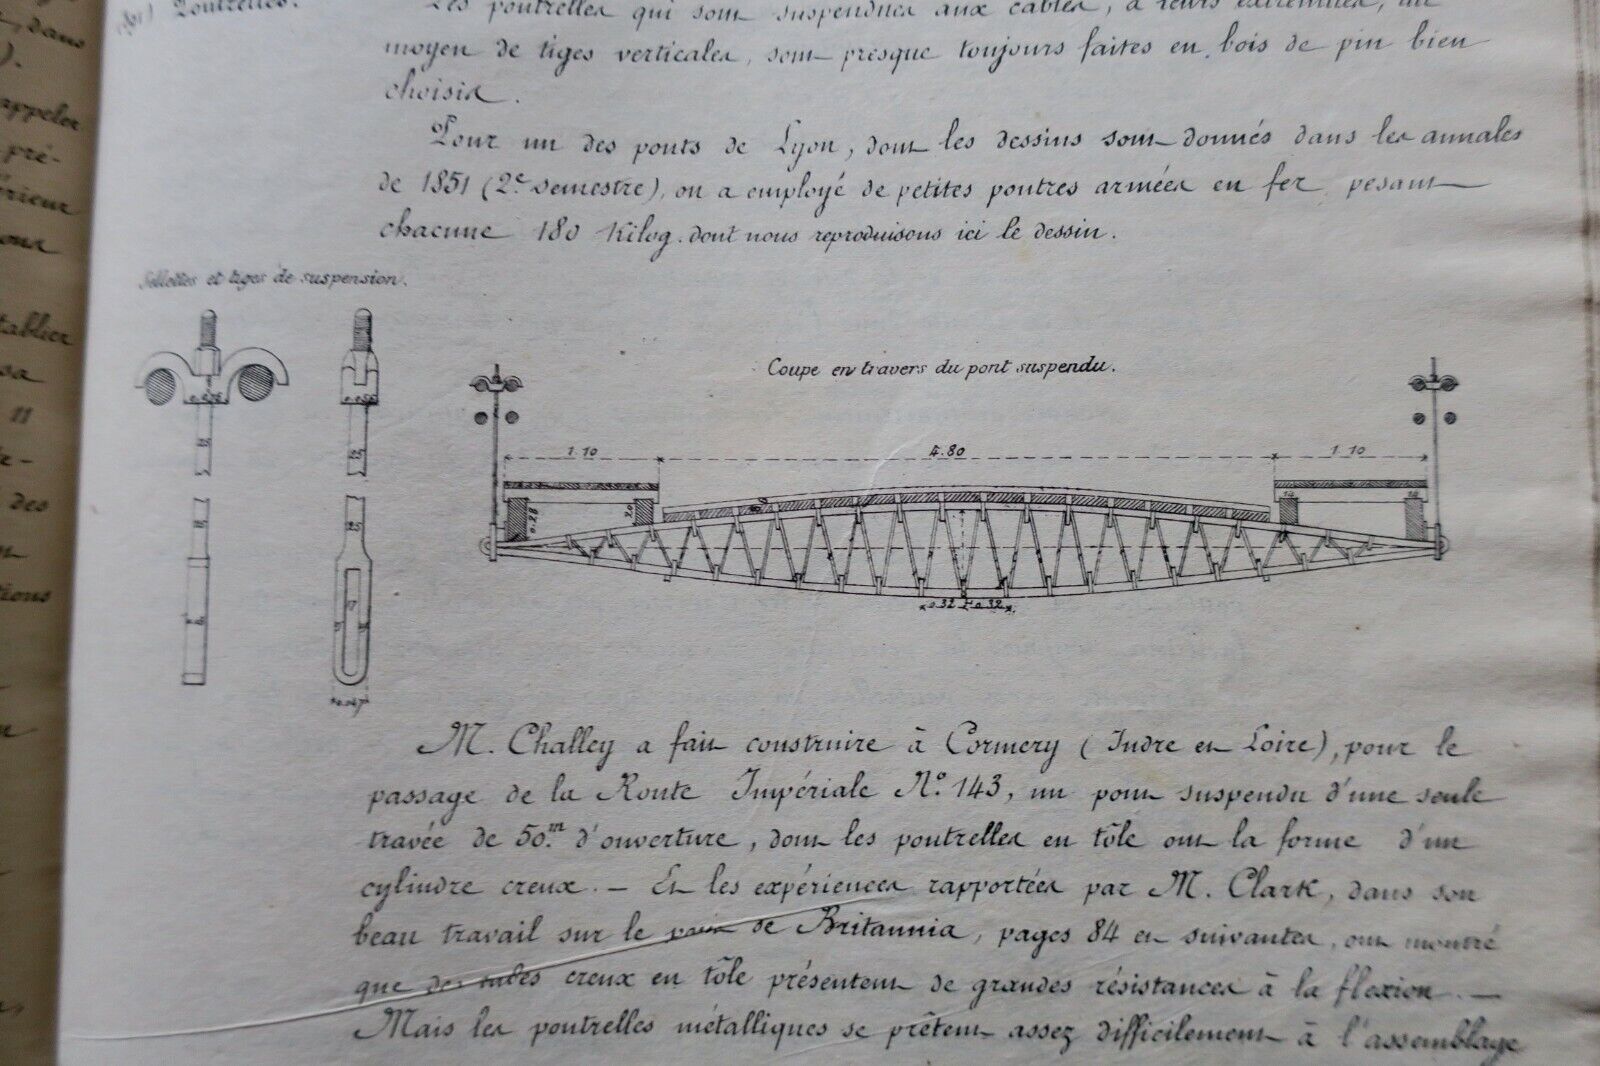 Poutrelles.
Les poutrelles qui sont suspendues aux câbles, à leurs extrémités, au
moyen de tiges verticales, sont presque toujours faites en bois de pin bien
choisis.
Pour un des ponts de Lyon, dont les dessins sont donnés dans les annales
de 1851 (2e semestre), on a employé de petites poutres armées en fer pesant
chacune 180 Kilog. dont nous reproduisons ici le dessin.
Sellettes et tiges de suspension.
Coupe en travers du pont suspendu.
1.10
4.80
1.10
0.28
0.32
0.32
25
17
0.047
M. Challey a fait construire à Cormery (Indre et Loire), pour le
passage de la Route Impériale No. 143, un pont suspendu d'une seule
travée de 50.m d'ouverture, dont les poutrelles en tôle ont la forme d'un
cylindre creux. — Et les expériences rapportées par M. Clark, dans son
beau travail sur le pont de Britannia, pages 84 et suivantes, ont montré
que des tubes creux en tôle présentent de grandes résistances à la flexion. —
Mais les poutrelles métalliques se prêtent assez difficilement à l'assemblage
appeler
pré-
érieur
tablier
sa
11
des
tions
dans